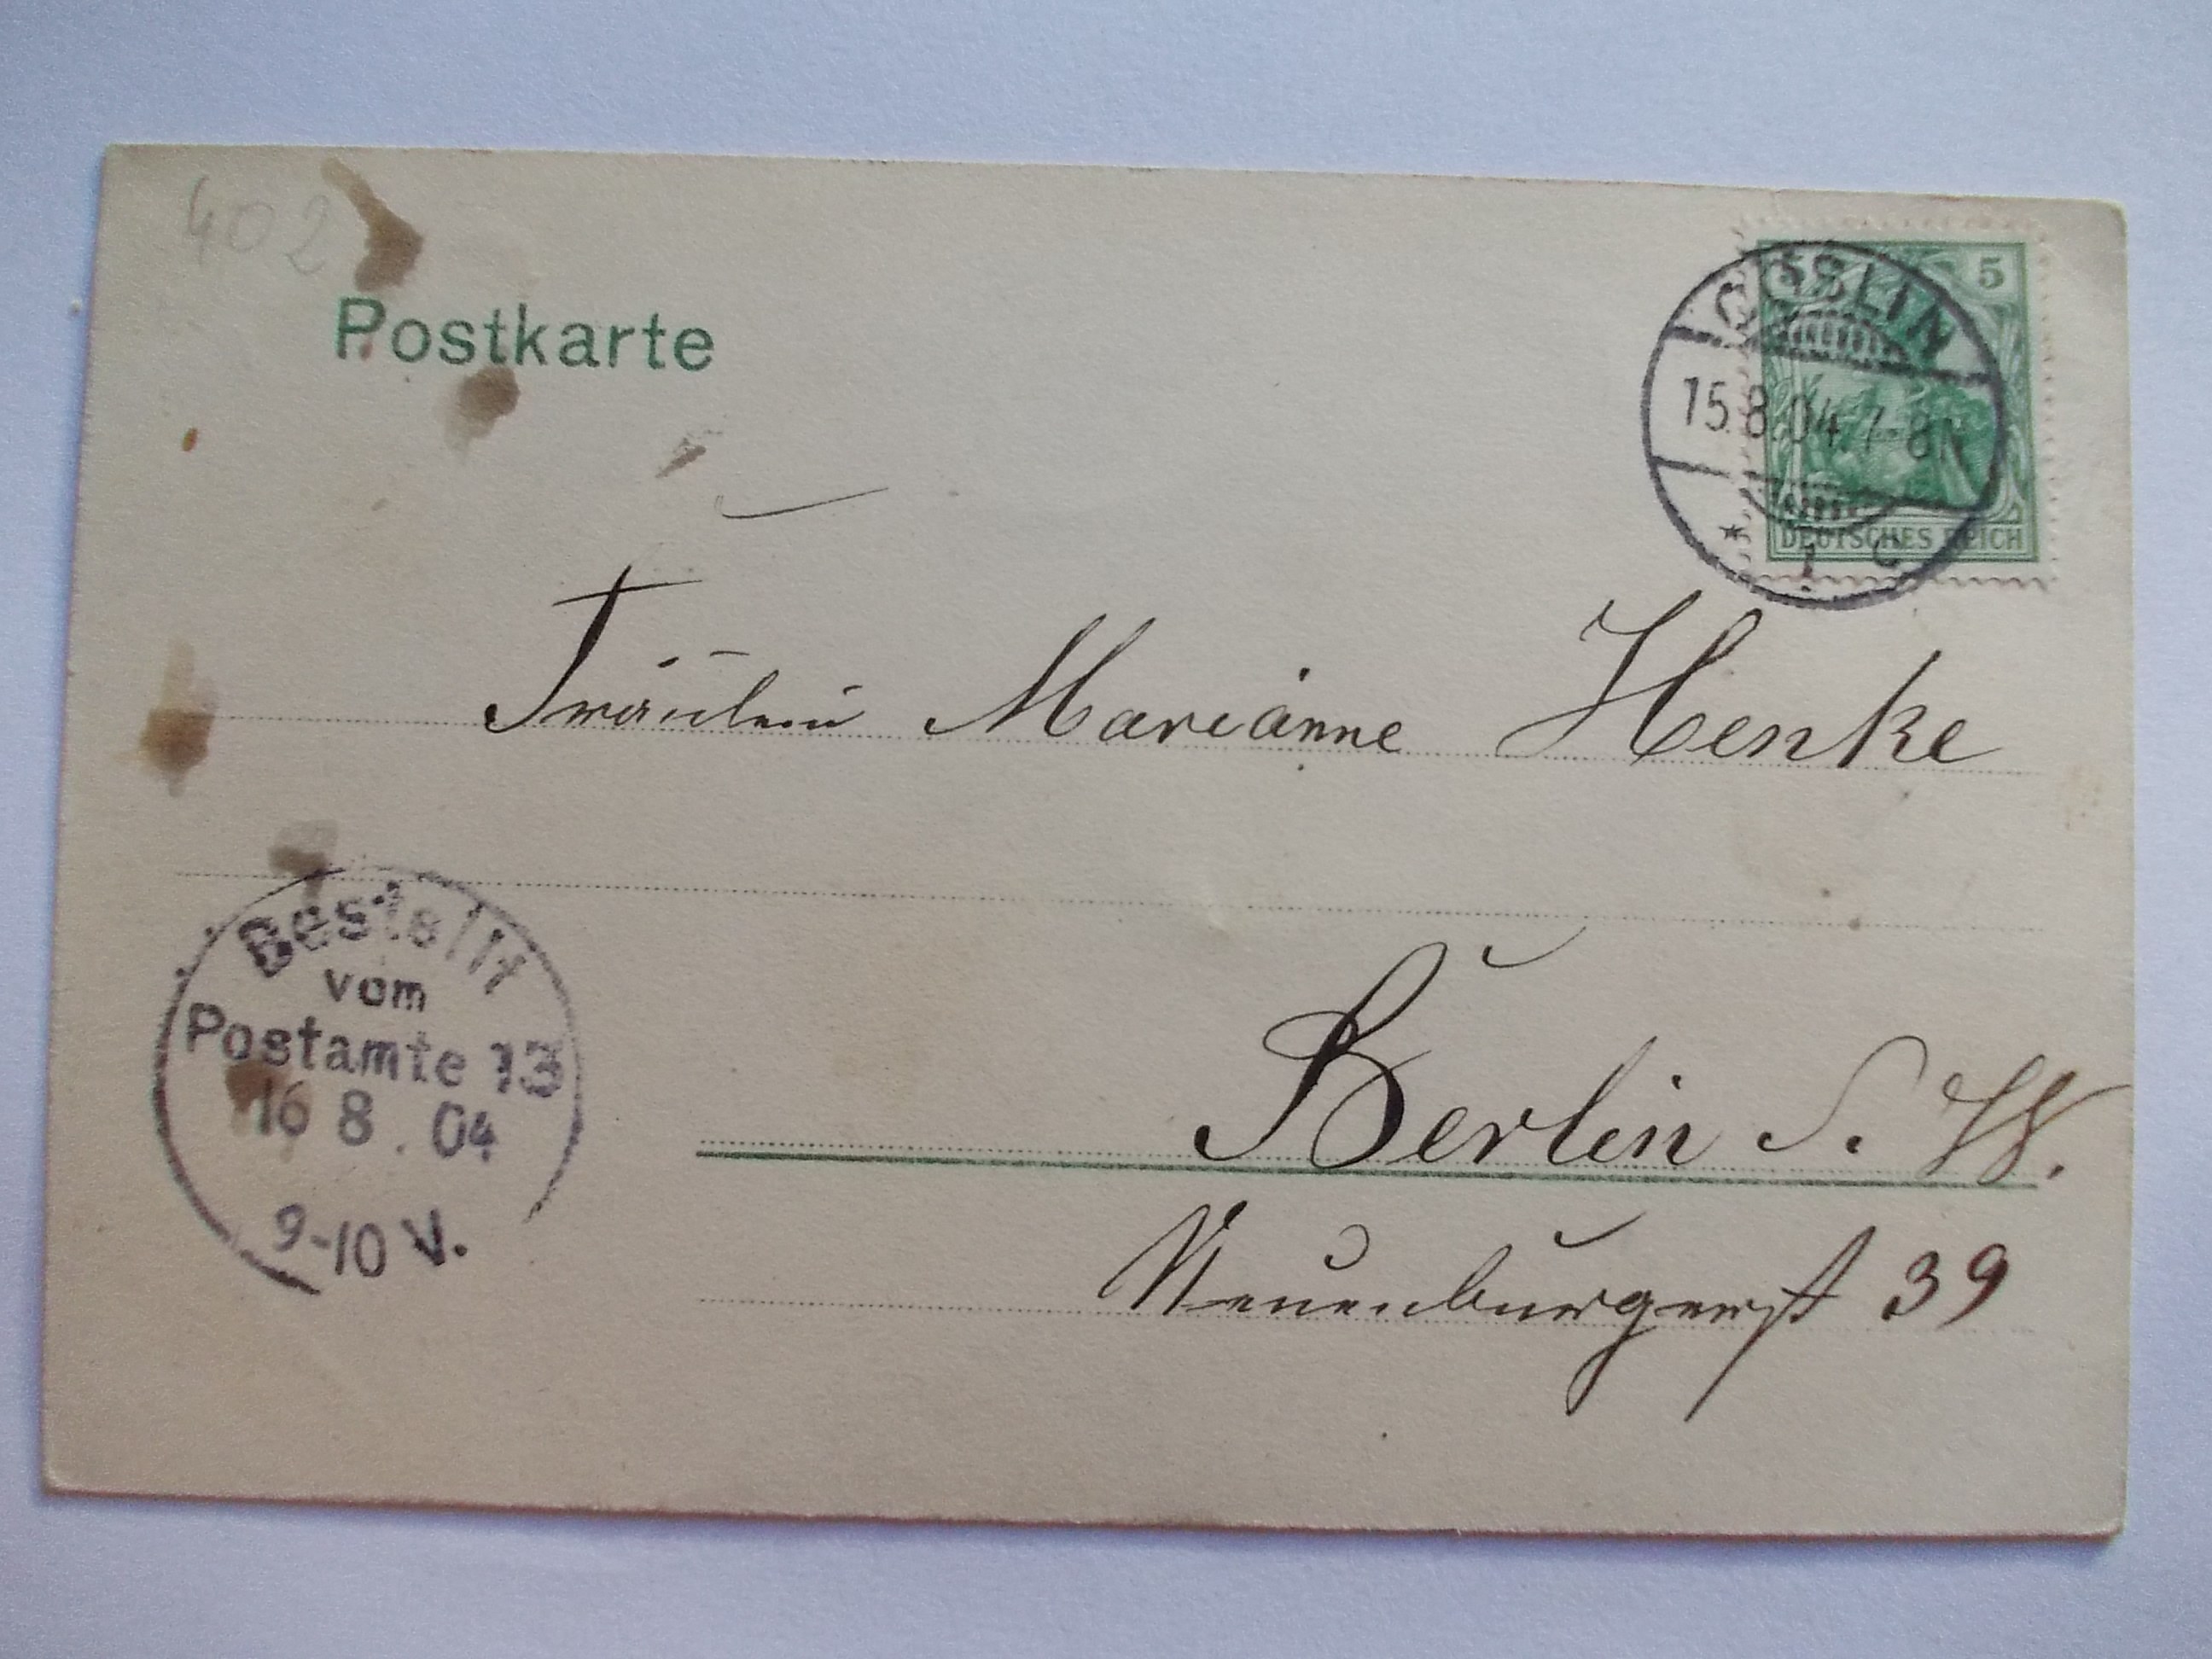 402
Postkarte
5
CÖSLIN
15.8.04.7-8N
* 1 c
DEUTSCHES REICH
Fräulein Marianne Henke
Bestellt
vom
Postamte 13
16 8. 04
9-10 V.
Berlin S. W.
Neuenburgerst 39